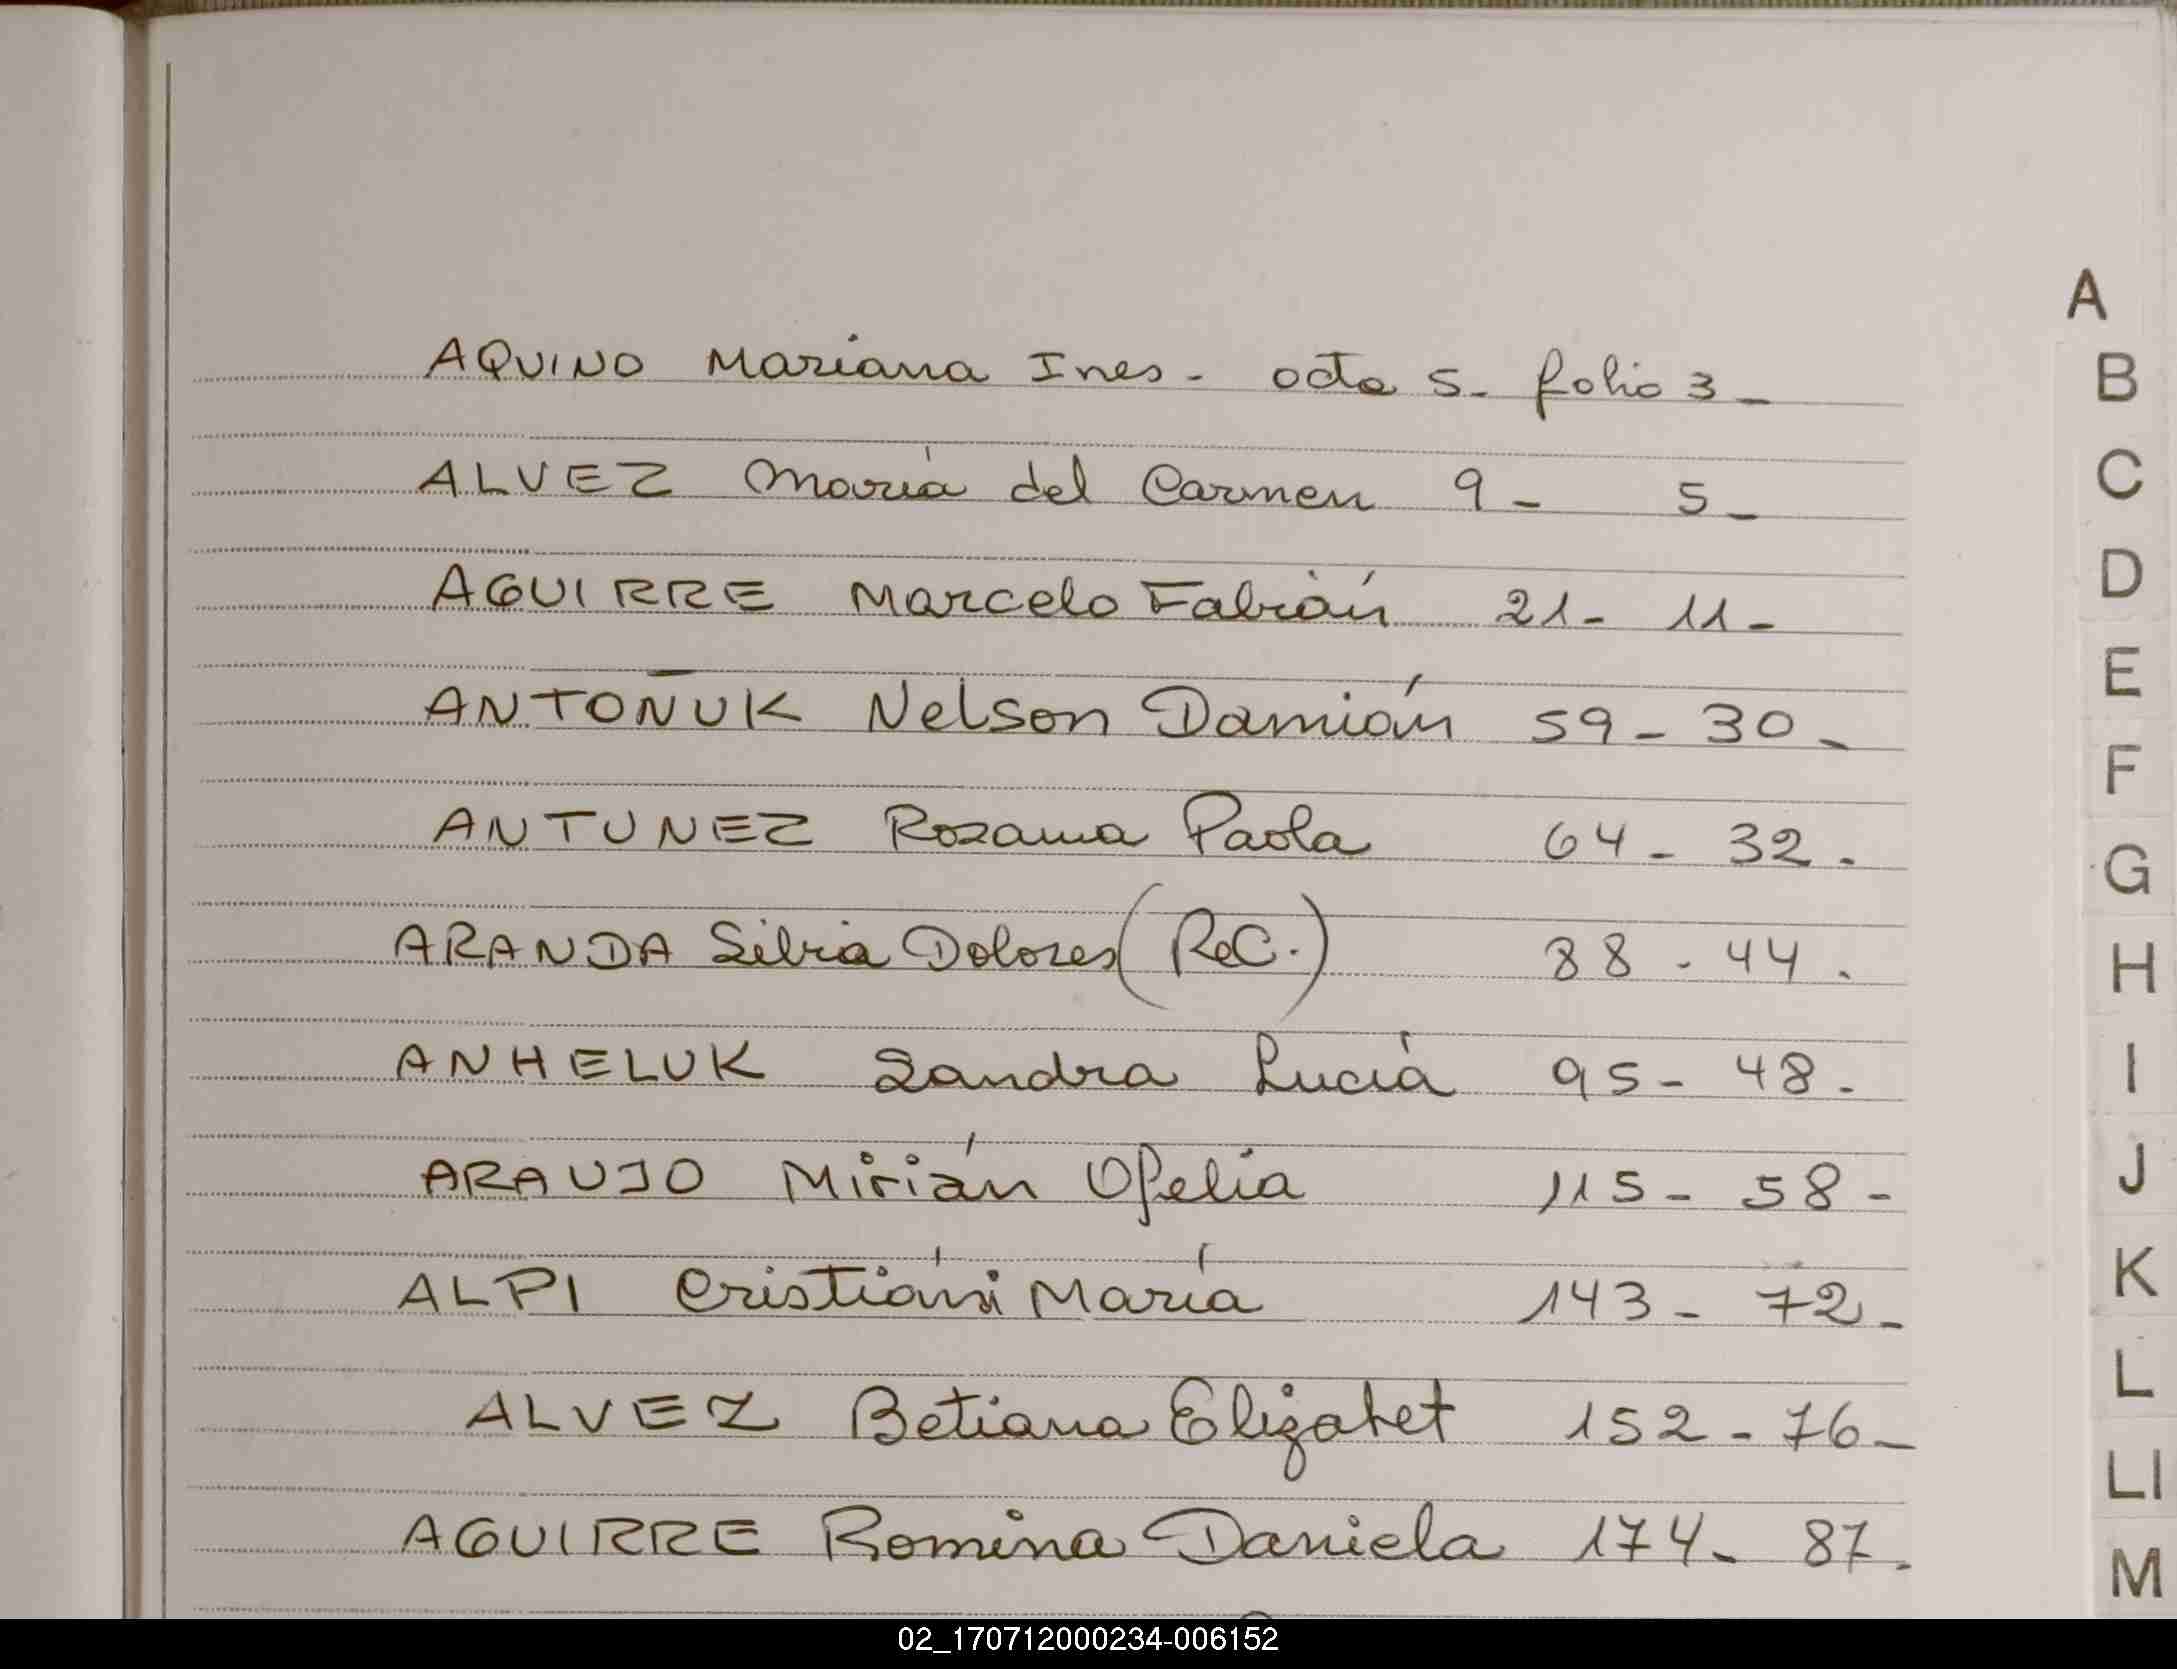 AQUINO Mariana Ines - acta 5 - folio 3 -
ALVEZ María del Carmen 9 - 5 -
AGUIRRE Marcelo Fabián 21 - 11 -
ANTOÑUK Nelson Damián 59 - 30 -
ANTUNEZ Rozana Paola 64 - 32 .
ARANDA Silvia Dolores (ReC.) 88 - 44 .
ANHELUK Sandra Lucía 95 - 48 -
ARAUJO Mirián Ofelia 115 - 58 -
ALPI María 143 - 72 -
ALVEZ Betiana Elizabet 152 - 76 -
AGUIRRE Romina Daniela 174 - 87 .
A
B
C
D
E
F
G
H
I
J
K
L
Ll
M
02_170712000234-006152